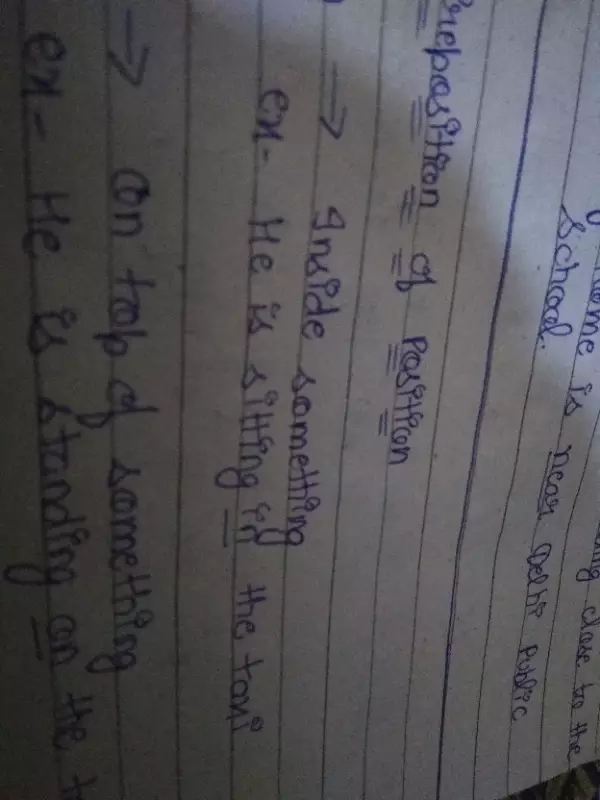 home is near Delhi Public
school.
Preposition of Position
→ Inside something
ex- He is sitting in the taxi
→ on top of something
ex- He is standing on the